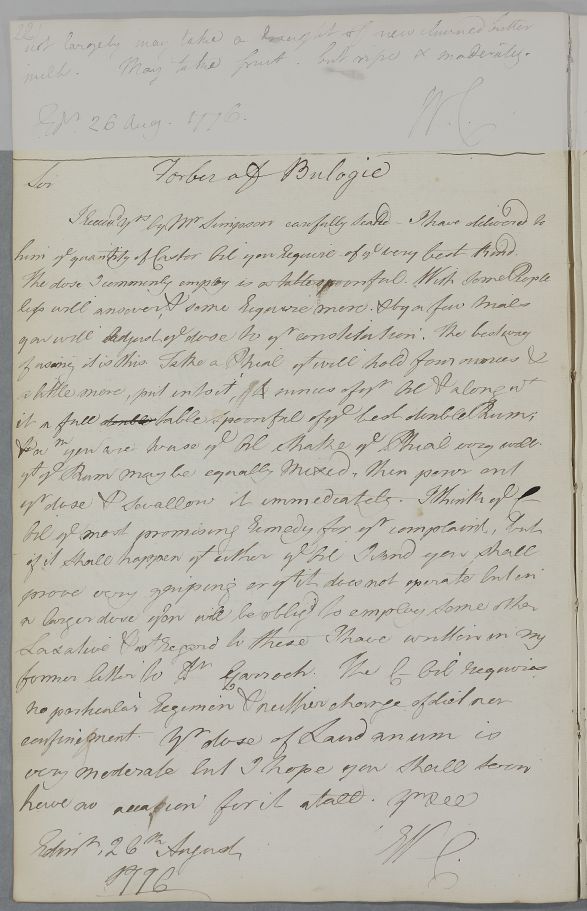 221
not largely may take a draught of new churned butter
milk. May take fruit. but ripe & moderately.
Edr. 26 Aug. 1776.
W. C.
Forbes of Bulogie
Sir
I Received yrs by Mr Simpson carefully Seald - I have delivered to
him ye quantity of Castor Oil you Require of ye very best Kind.
The dose I commonly employ is a tablespoonful. With Some People
less will answer & some Require more. & by a few trials
you will Adjust ye dose to yr constitution. The best way
of using it is this. Take a Phial yt will hold four ounces &
a little more, put into it ounces of yr Oil & along wt
it a full table spoonful of ye best double Rum;
& wn you are to use ye Oil shake ye Phial very well
yt ye Rum may be equally Mixed, then pour out
yr dose & Swallow it immediately. I think ye C
Oil ye most promising Remedy for yr complaint, but
if it shall happen yt either ye Oil I send you shall
prove very griping or yt it does not operate but in
a larger dose you will be oblig'd to employ some other
Laxative & wt Regard to these I have written in my
former letter to Dr Garroch. The C Oil requires
no particular Regimen & neither change of diet nor
confinement. Yr dose of Laudanum is
very moderate but I hope you shall soon
have no occasion for it at all.
Edinr. 26th August
1776
W C.